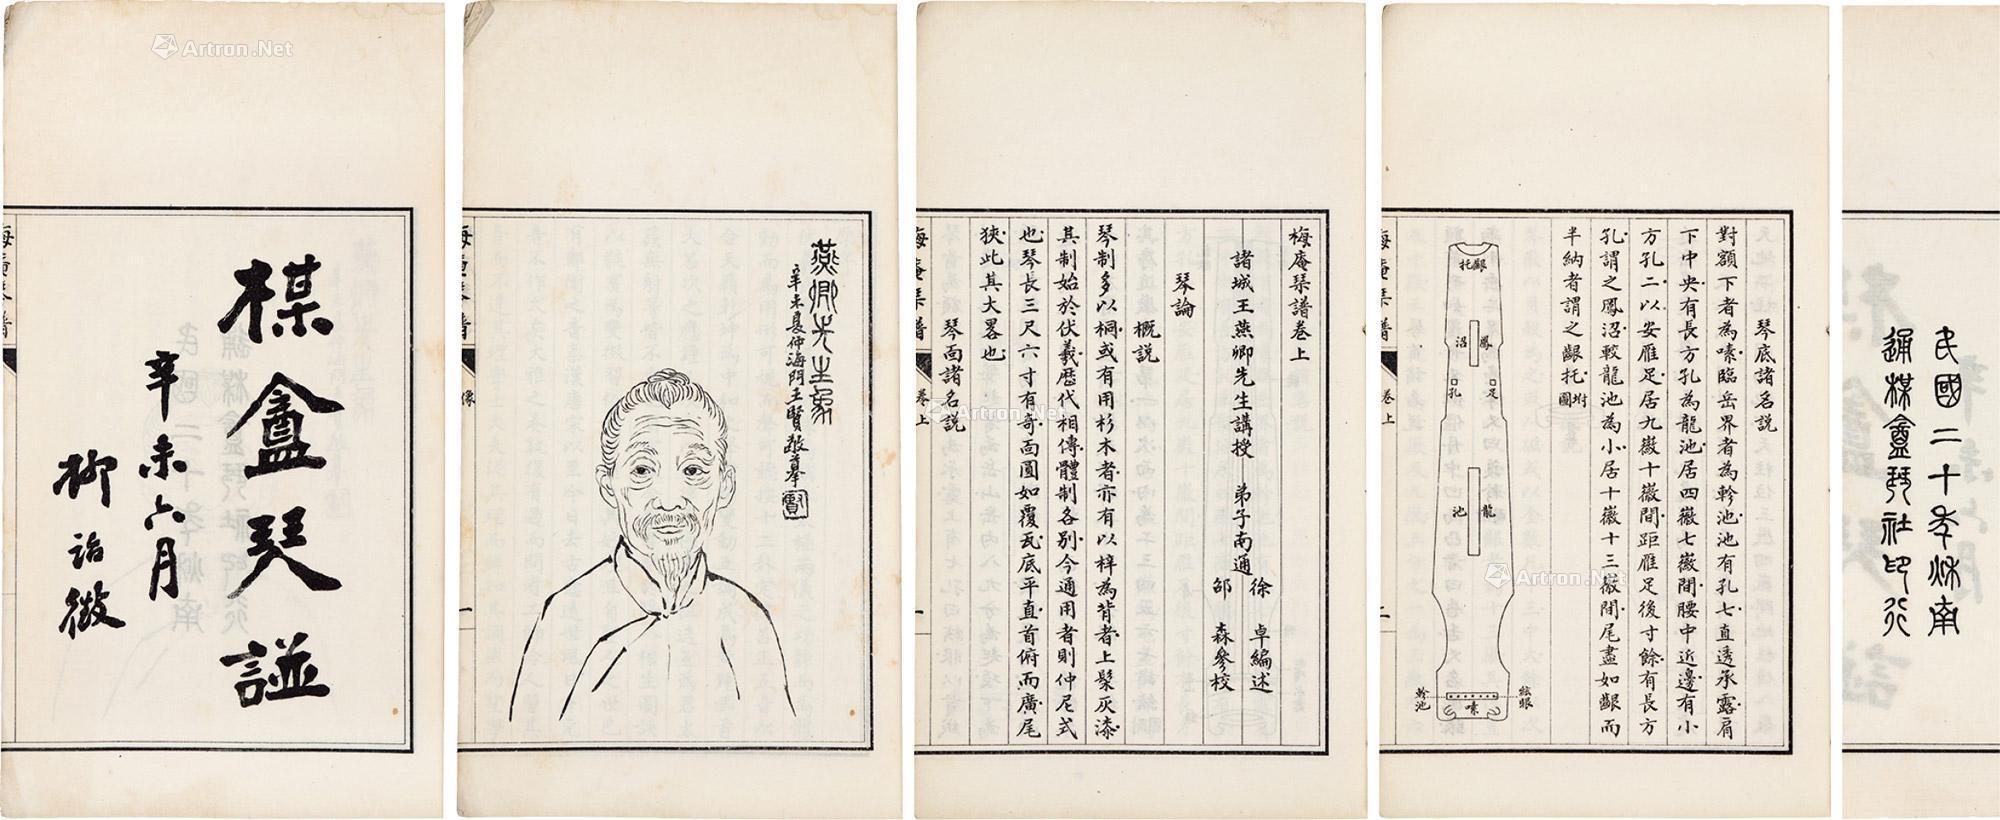 槑盦琴諩
辛未六月
柳詒徵
燕卿先生象
辛未夏仲海門王賢敬摹
賢
像
一
梅庵琹譜卷上
諸城王燕卿先生講授
弟子南通
徐卓編述
邵森參校
琴論
概說
琴制多以桐或有用杉木者亦有以梓為背者上髹灰漆
其制始於伏羲歷代相傳體制各別今通用者則仲尼式
也琴長三尺六寸有奇面圓如覆瓦底平直首俯而廣尾
狹此其大畧也
琴面諸名說
梅庵琹譜
卷上
一
琴底諸名說
對額下者為嗉臨岳界者為軫池池有孔七直透承露肩
下中央有長方孔為龍池居四徽七徽間腰中近邊有小
方孔二以安雁足居九徽十徽間距雁足後寸餘有長方
孔謂之鳳沼較龍池為小居十徽十三徽間尾盡如齦而
半納者謂之齦托坿圖
齦托
鳳沼
足孔
龍池
絃眼
軫池
嗉
卷上
二
民國二十年秌南
通槑盦琴社印行
Artron.Net
Artron.Net
Artron.Net